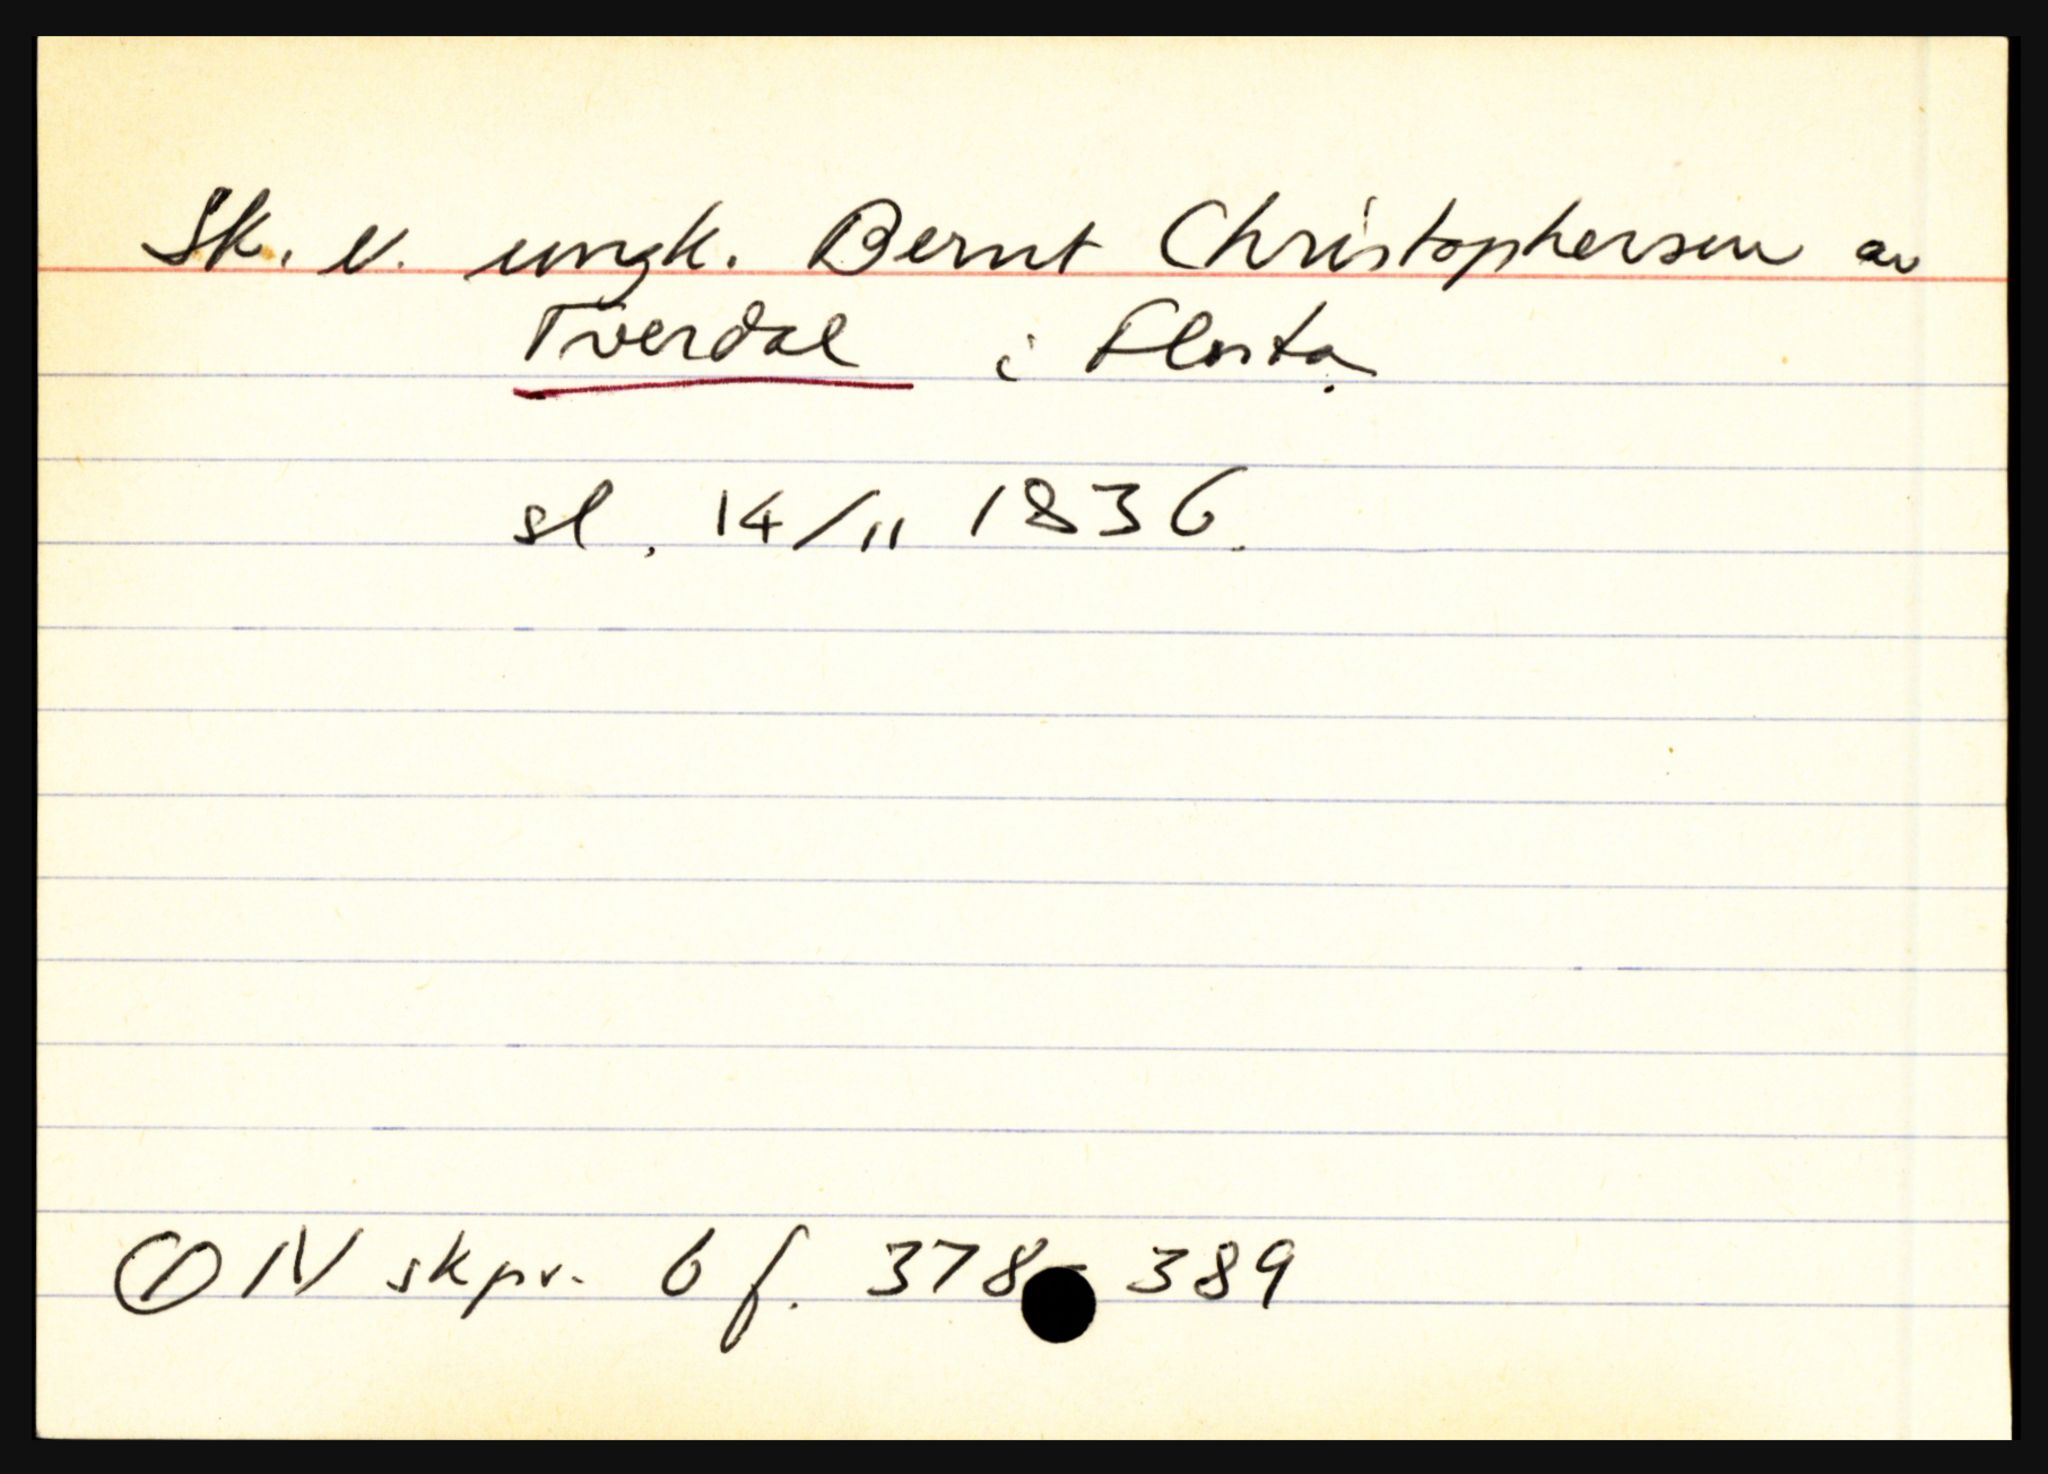 Sk. e. ungk. Bernt Christophersen av
Tverdal i Flosta.
sl. 14/11 1836.
Ø N skpr. 6 f. 378-389